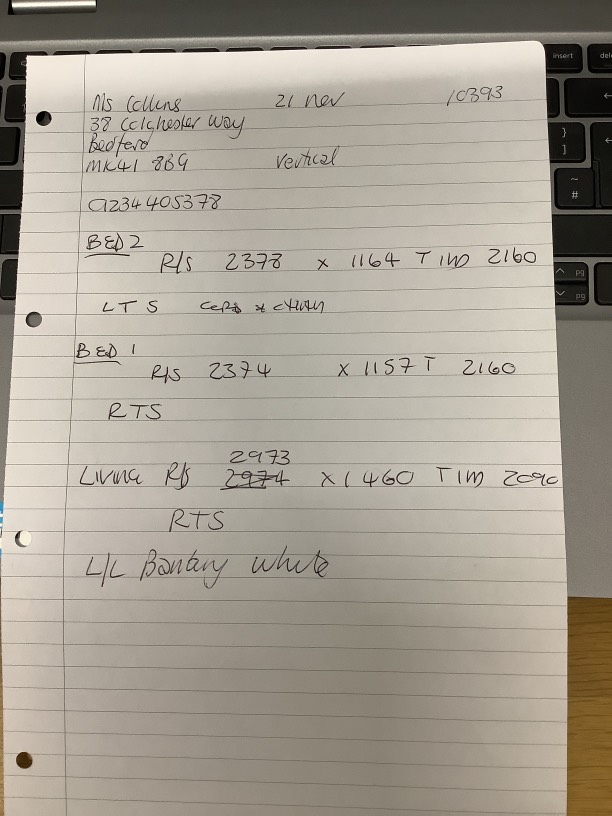 Ms Collins 21 Nov 10393
38 Colchester Way
Bedford
MK41 8BG
Vertical
01234405378
BED 2
R/S 2378 x 1164 T IM 2160
LTS CORD & CHAIN
BED 1
R/S 2374 x 1157 T 2160
RTS
2973
LIVING R/S 2974 x 1460 T IM 2090
RTS
L/L White
insert
del
pg
pg